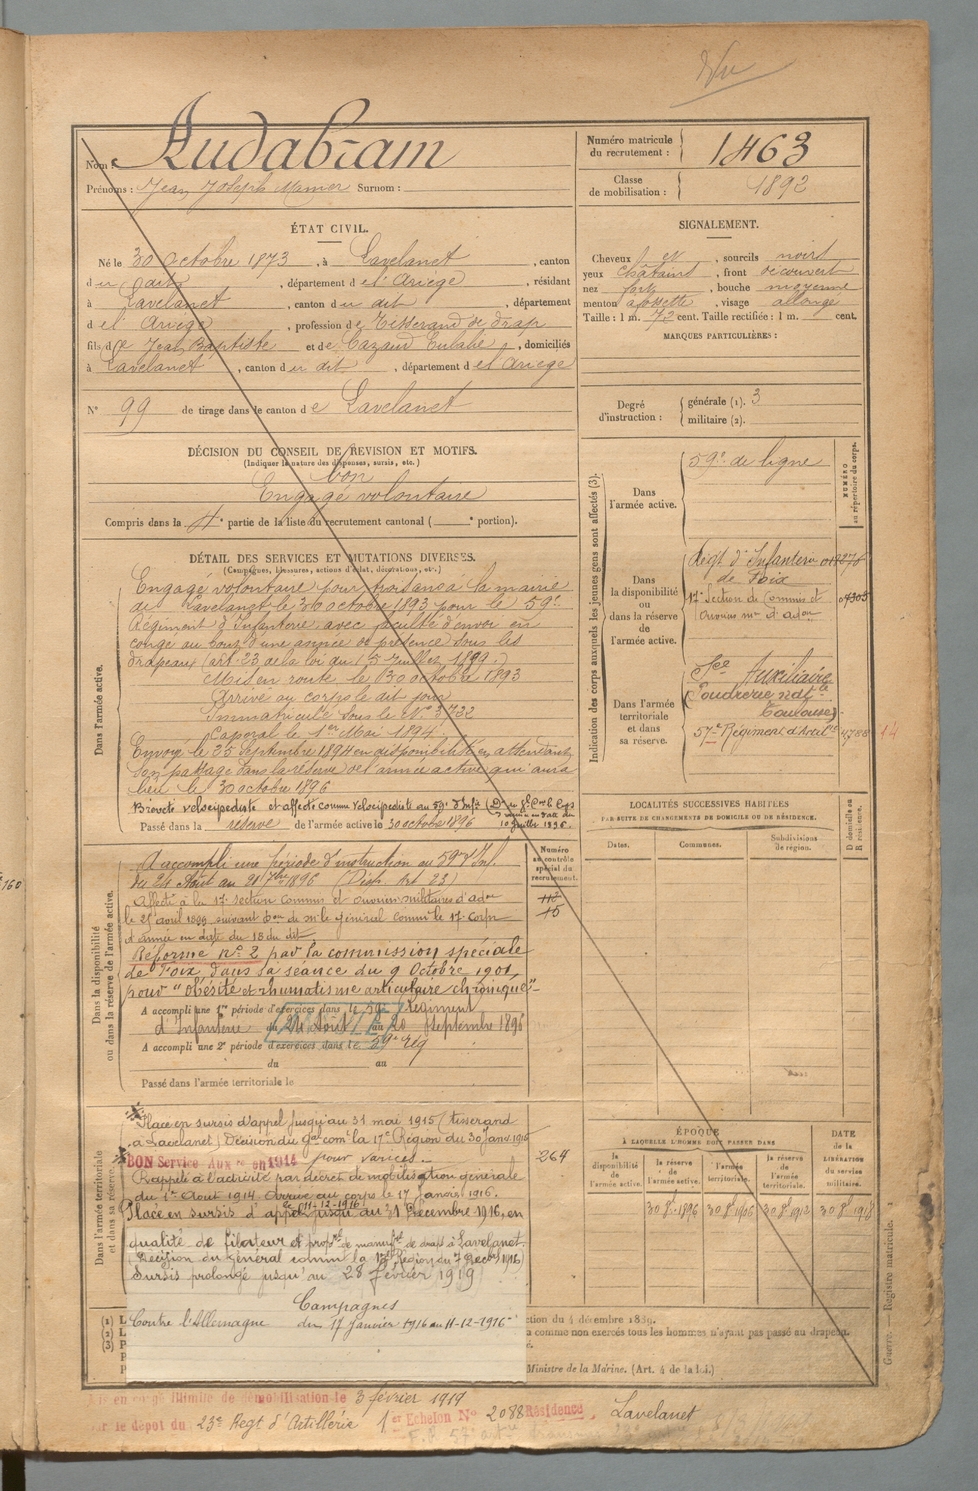 Vu
Nom : Audabram
Prénoms : Jean Joseph Surnom :
Numéro matricule du recrutement : 1463
Classe de mobilisation : 1892
ÉTAT CIVIL.
Né le 30 Octobre 1873, à Lavelanet, canton
du dit, département de l'Ariège, résidant
à Lavelanet, canton du dit, département
de l'Ariège, profession de Tisserand de drap
fils de Jean Baptiste et de Cazaud Eulalie, domiciliés
à Lavelanet, canton du dit, département de l'Ariège
N° 99 de tirage dans le canton de Lavelanet
SIGNALEMENT.
Cheveux, sourcils noirs
yeux châtains, front découvert
nez fort, bouche moyenne
menton à fossette, visage allongé
Taille : 1 m. 72 cent. Taille rectifiée : 1 m. cent.
MARQUES PARTICULIÈRES :
Degré d'instruction : générale (1). 3
militaire (2).
DÉCISION DU CONSEIL DE REVISION ET MOTIFS.
(Indiquer la nature des dispenses, sursis, etc.)
bon
Engagé volontaire
Compris dans la 4e partie de la liste du recrutement cantonal ( e portion).
DÉTAIL DES SERVICES ET MUTATIONS DIVERSES.
(Campagnes, blessures, actions d'éclat, décorations, etc.)
Dans l'armée active.
Engagé volontaire pour trois ans à la mairie
de Lavelanet le 30 octobre 1893 pour le 59e
Régiment d'Infanterie avec faculté d'envoi en
congé au bout d'une année de présence sous les
drapeaux (art. 23 de la loi du 15 juillet 1889.)
Mis en route le 30 octobre 1893
Arrivé au corps le dit jour
Immatriculé sous le N° 3732
Caporal le 1er Mai 1894
Envoyé le 25 septembre 1894 en disponibilité en attendant
son passage dans la réserve de l'armée active qui aura
lieu le 30 octobre 1896
Breveté vélocipédiste et affecté comme vélocipédiste au 59e d'Infie
10 juillet 1896.
Passé dans la réserve de l'armée active le 30 octobre 1896
Indication des corps auxquels les jeunes gens sont affectés (3).
NUMÉRO au répertoire du corps.
Dans l'armée active.
59e de ligne
Dans la disponibilité ou dans la réserve de l'armée active.
Régt d'Infanterie
de Foix
17e Section de Commis et
Ouvriers mres d'adon
Dans l'armée territoriale et dans sa réserve.
Sce Auxiliaire
Poudrerie natle
Toulouse
57e Régiment d'Artrie 4788
LOCALITÉS SUCCESSIVES HABITÉES
PAR SUITE DE CHANGEMENTS DE DOMICILE OU DE RÉSIDENCE.
Dates. Communes. Subdivisions de région. D domicile ou R résidence.
Dans la disponibilité ou dans la réserve de l'armée active.
Numéro au contrôle spécial du recrutement.
A accompli une période d'instruction au 59e d'Inf.
du 24 Août au 20 7bre 1896 (Disp. Art 23)
Affecté à la 17e section commis et ouvriers militaires d'adon
le 25 avril 1899 suivant de mr le général commt le 17e corps
d'armée en date du 18 du dit
Réformé n° 2 par la commission spéciale
de Foix dans sa séance du 9 Octobre 1901
pour "obésité et rhumatisme articulaire chronique"
A accompli une 1re période d'exercices dans le 59e Régiment
d'Infanterie du 24 Août au 20 Septembre 1896
A accompli une 2e période d'exercices dans le 59e Rég
du au
Passé dans l'armée territoriale le
Dans l'armée territoriale et dans sa réserve.
Placé en sursis d'appel jusqu'au 31 mai 1915 (tisserand
à Lavelanet) Décision du Gal comt la 17e Région du 30 Janv. 1915
BON Service Auxre en 1914 pour varices.
Rappelé à l'activité par décret de mobilisation générale
du 1er Août 1914 Arrivé au corps le 17 Janvier 1916.
le 11-12-1916
Placé en sursis d'appel jusqu'au 31 Décembre 1916, en
qualité de filateur et proprre de manufre de draps à Lavelanet.
(Décision du Général commt la 17e Région du 7 Décbre 1916)
Sursis prolongé jusqu'au 28 février 1919
Campagnes
Contre l'Allemagne du 17 Janvier 1916 au 11-12-1916
264
ÉPOQUE
À LAQUELLE L'HOMME DOIT PASSER DANS
la disponibilité de l'armée active. la réserve de l'armée active. l'armée territoriale. la réserve de l'armée territoriale.
DATE de la LIBÉRATION du service militaire.
30 8bre 1896 30 8bre 1906 30 8bre 1912 30 8bre 1918
ction du 4 décembre 1889.
a comme non exercés tous les hommes n'ayant pas passé au drapeau.
Ministre de la Marine. (Art. 4 de la loi.)
Guerre. — Registre matricule.
en congé illimité de démobilisation le 3 février 1919
le dépôt du 23e Regt d'Artillerie 1er Echelon N° 2088 Résidence, Lavelanet